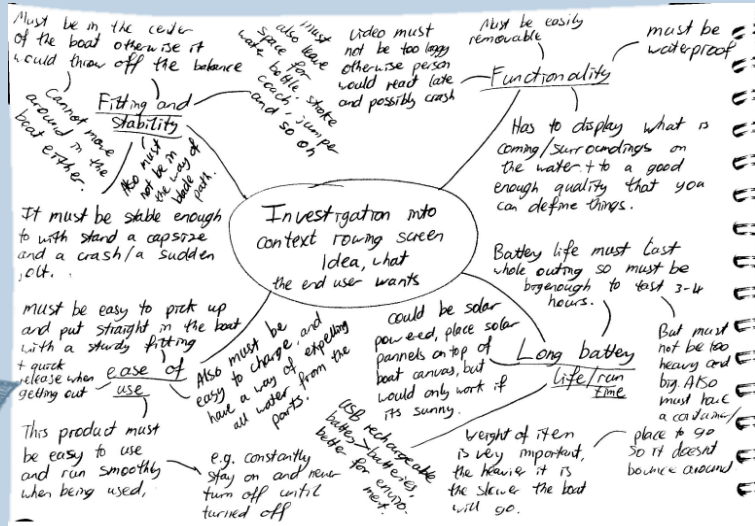 Investigation into
context rowing screen
Idea, what
the end user wants
Fitting and
stability
Must be in the center
of the boat otherwise it
would throw off the balance
Cannot move
around in the
boat either.
must
also leave
space for
water bottle, stroke
coach, jumper
and so on
Also must
not be in
the way of
blade path.
It must be stable enough
to with stand a capsize
and a crash/a sudden
jolt.
Functionality
Video must
not be too laggy
otherwise person
would react late
and possibly crash
Must be easily
removable
must be
waterproof
Has to display what is
coming/surroundings on
the water + to a good
enough quality that you
can define things.
Long battery
life/run
time
Battey life must last
whole outing so must be
big enough to last 3-4
hours.
But must
not be too
heavy and
big. Also
must have
a container/
place to go
so it doesnt
bounce around
could be solar
powered, place solar
pannels on top of
boat canvas, but
would only work if
its sunny.
USB rechargeable
battery > batteries,
better for enviro-
ment.
weight of item
is very important,
the heavier it is
the slower the boat
will go.
ease of
use
must be easy to pick up
and put straight in the boat
with a sturdy fitting
+ quick
release when
getting out
Also must be
easy to charge, and
have a way of expelling
all water from the
parts.
This product must
be easy to use
and run smoothly
when being used,
e.g. constantly
stay on and never
turn off until
turned off